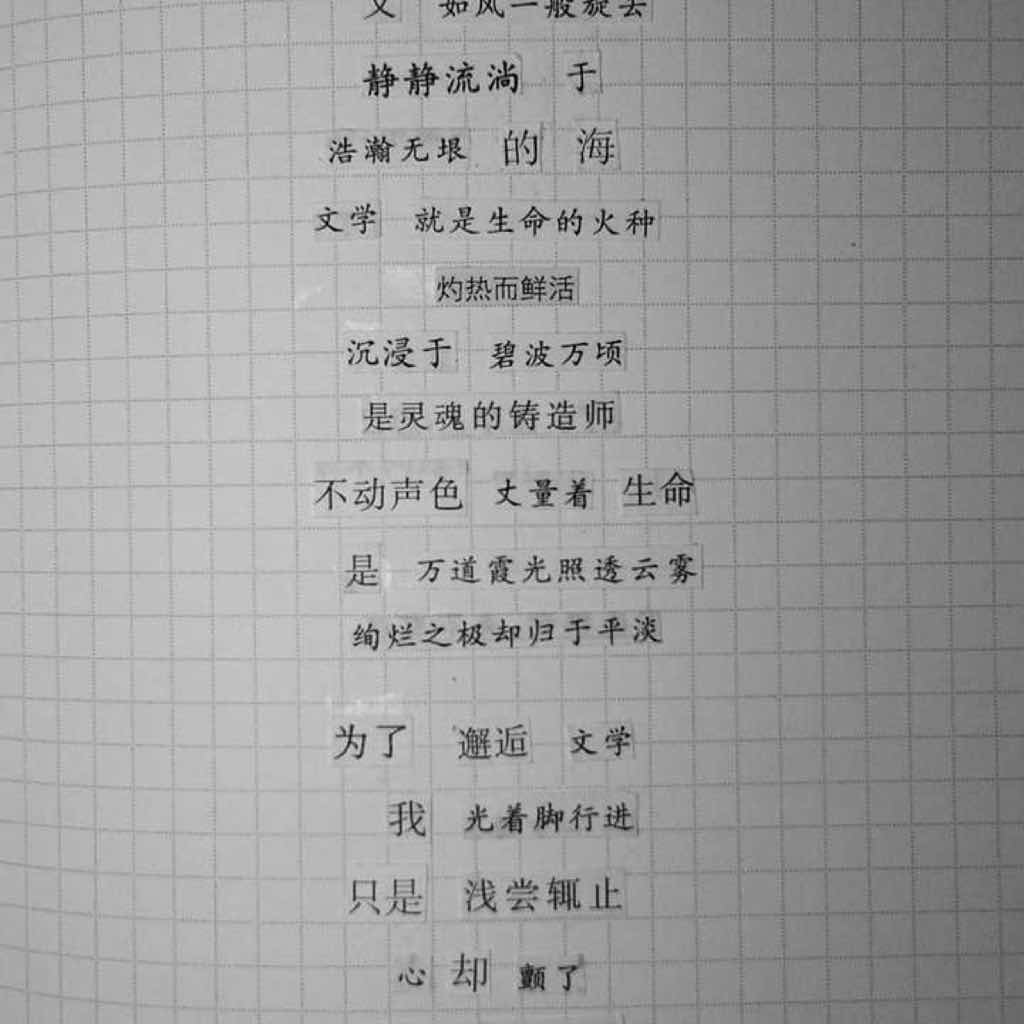 又 如风一般旋去
静静流淌 于
浩瀚无垠 的 海
文学 就是生命的火种
灼热而鲜活
沉浸于 碧波万顷
是灵魂的铸造师
不动声色 丈量着 生命
是 万道霞光照透云雾
绚烂之极却归于平淡
为了 邂逅 文学
我 光着脚行进
只是 浅尝辄止
心 却 颤了